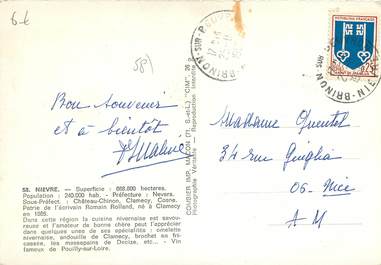 6-€
58)
Bon Souvenir
et à bientôt
58. NIEVRE. — Superficie : 688.800 hectares.
Population : 240.000 hab. - Préfecture : Nevers.
Sous-Préfect. : Château-Chinon, Clamecy, Cosne.
Patrie de l'écrivain Romain Rolland, né à Clamecy
en 1866.
Dans cette région la cuisine nivernaise est savou-
reuse et l'amateur de bonne chère peut l'apprécier
dans quelques unes de ses spécialités : omelette
nivernaise, andouille de Clamecy, brochet en fri-
cassée, les massepains de Decize, etc... - Vin
fameux de Pouilly-sur-Loire.
COMBIER IMP. MACON (71. S.-et-L.) "CIM"
Photographie Véritable - Reproduction Interdite
BRINON-SUR-
BRINON SUR
REPUBLIQUE FRANÇAISE
MONT-DE-MARSAN
Madame
34 rue
06. Nice
A M